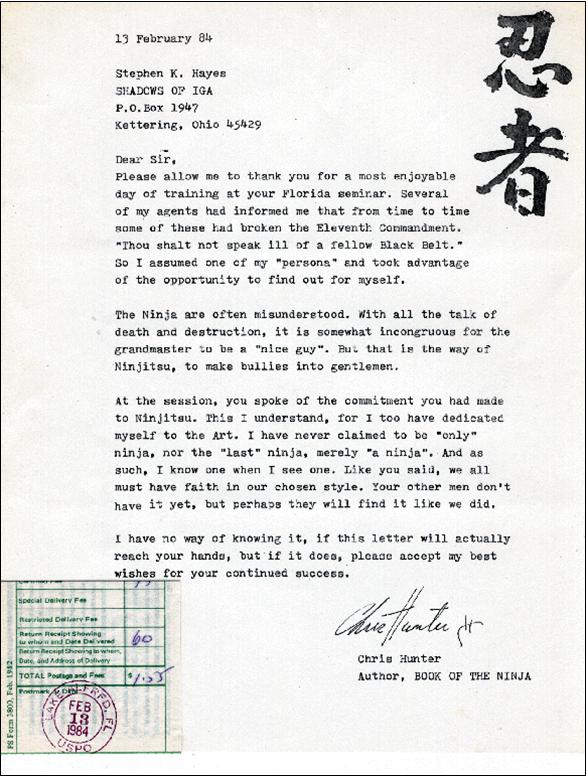 13 February 84
忍者
Stephen K. Hayes
SHADOWS OF IGA
P.O.Box 1947
Kettering, Ohio 45429
Dear Sir,
Please allow me to thank you for a most enjoyable
day of training at your Florida seminar. Several
of my agents had informed me that from time to time
some of these had broken the Eleventh Commandment.
"Thou shalt not speak ill of a fellow Black Belt."
So I assumed one of my "persona" and took advantage
of the opportunity to find out for myself.
The Ninja are often misunderstood. With all the talk of
death and destruction, it is somewhat incongruous for the
grandmaster to be a "nice guy". But that is the way of
Ninjitsu, to make bullies into gentlemen.
At the session, you spoke of the commitment you had made
to Ninjitsu. This I understand, for I too have dedicated
myself to the Art. I have never claimed to be "only"
ninja, nor the "last" ninja, merely "a ninja". And as
such, I know one when I see one. Like you said, we all
must have faith in our chosen style. Your other men don't
have it yet, but perhaps they will find it like we did.
I have no way of knowing it, if this letter will actually
reach your hands, but if it does, please accept my best
wishes for your continued success.
Chris Hunter
Chris Hunter
Author, BOOK OF THE NINJA
Special Delivery Fee
Restricted Delivery Fee
Return Receipt Showing
to whom and Date Delivered 60
Return Receipt Showing to whom,
Date, and Address of Delivery
TOTAL Postage and Fees $ 1.55
Postmark
FEB
13
1984
USPO
PS Form 3800, Feb. 1982